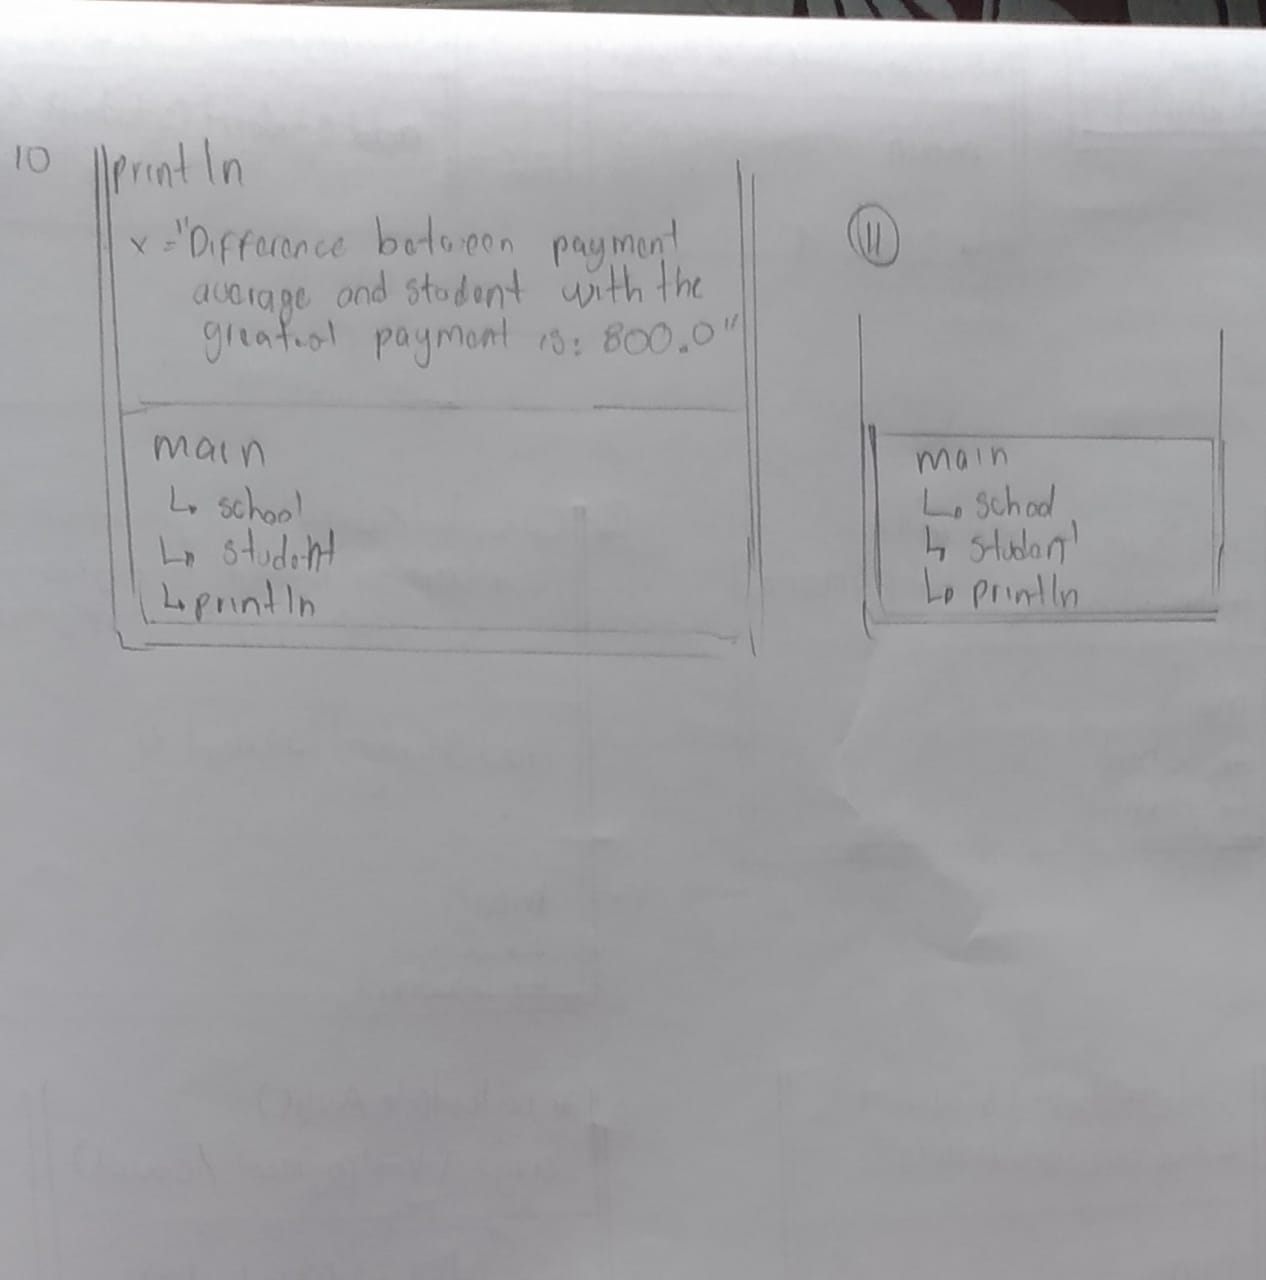 10
println
x="Difference between payment
average and student with the
greatest payment is: 800.0"
main
↳ school
↳ student
↳ println
11
main
↳ school
↳ student
↳ println